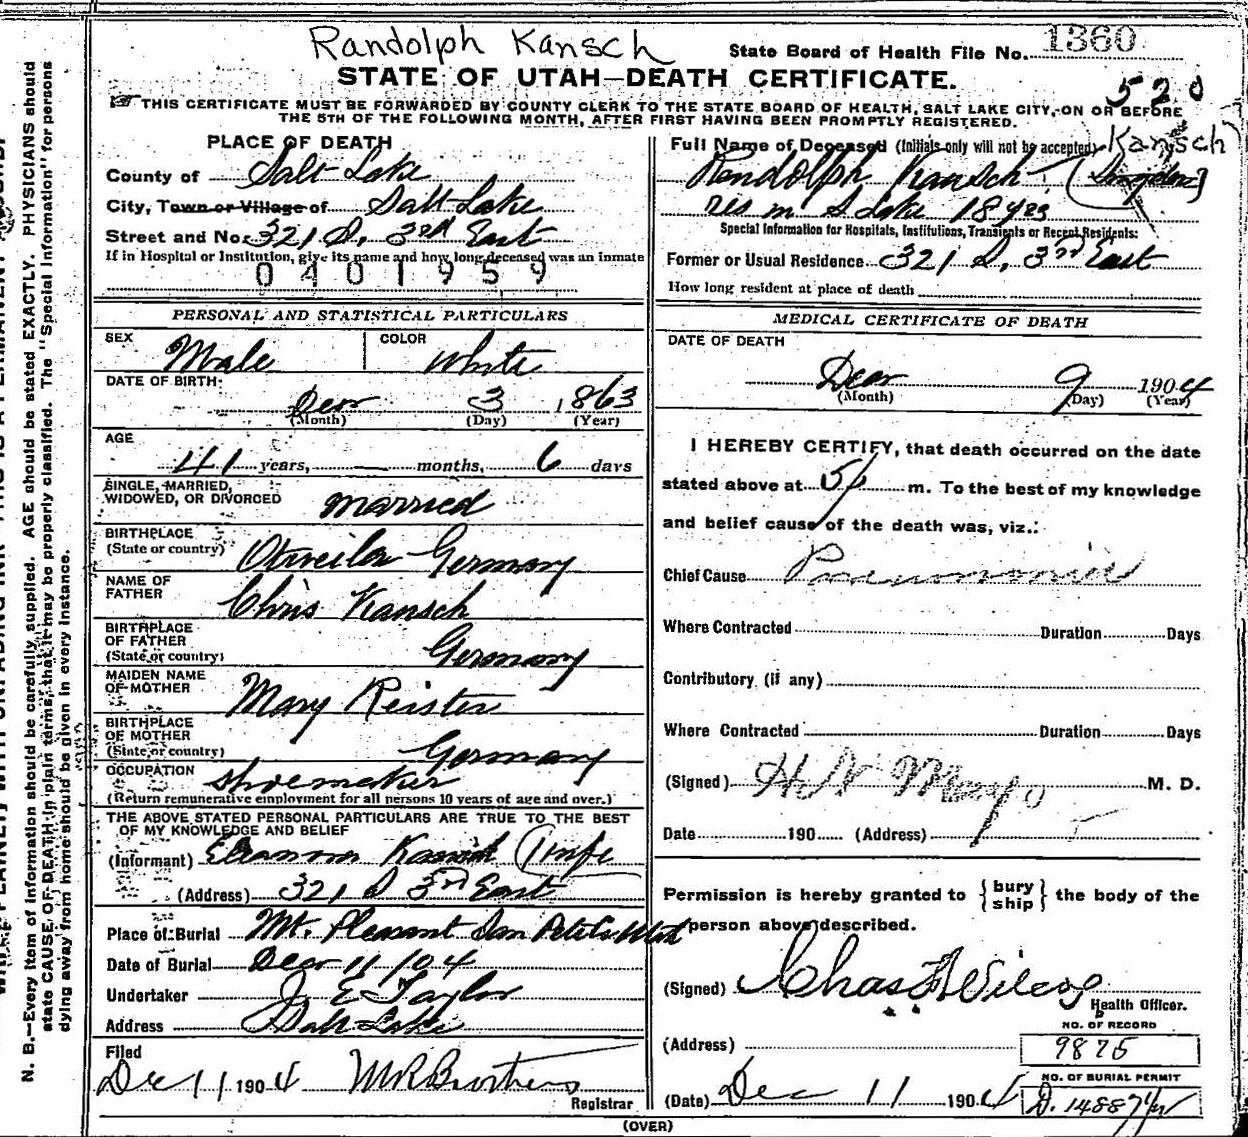 Randolph Kansch
State Board of Health File No. 1360
STATE OF UTAH—DEATH CERTIFICATE.
520
THIS CERTIFICATE MUST BE FORWARDED BY COUNTY CLERK TO THE STATE BOARD OF HEALTH, SALT LAKE CITY, ON OR BEFORE
THE 5TH OF THE FOLLOWING MONTH, AFTER FIRST HAVING BEEN PROMPTLY REGISTERED.
PLACE OF DEATH
County of Salt Lake
City, Town or Village of Salt Lake
Street and No. 321 S. 3rd East
If in Hospital or Institution, give its name and how long deceased was an inmate
0401959
PERSONAL AND STATISTICAL PARTICULARS
SEX Male COLOR White
DATE OF BIRTH:
Decr 3 1863
(Month) (Day) (Year)
AGE
41 years, — months, 6 days
SINGLE, MARRIED,
WIDOWED, OR DIVORCED married
BIRTHPLACE
(State or country) Germany
NAME OF
FATHER Chris Kansch
BIRTHPLACE
OF FATHER
(State or country) Germany
MAIDEN NAME
OF MOTHER Mary Reister
BIRTHPLACE
OF MOTHER
(State or country) Germany
OCCUPATION shoemaker
(Return remunerative employment for all persons 10 years of age and over.)
THE ABOVE STATED PERSONAL PARTICULARS ARE TRUE TO THE BEST
OF MY KNOWLEDGE AND BELIEF
(Informant) Eleanora (Wife
(Address) 321 S 3rd East
Place of Burial Mt. Pleasant San Pete Co Utah
Date of Burial Decr 11/04
Undertaker Jos E Taylor
Address Salt Lake
Filed
Dec 11 1904
Registrar
Full Name of Deceased (Initials only will not be accepted) Kansch
Randolph Kansch
res in S Lake 18 yrs
Special Information for Hospitals, Institutions, Transients or Recent Residents:
Former or Usual Residence 321 S. 3rd East
How long resident at place of death
MEDICAL CERTIFICATE OF DEATH
DATE OF DEATH
Decr 9 1904
(Month) (Day) (Year)
I HEREBY CERTIFY, that death occurred on the date
stated above at m. To the best of my knowledge
and belief cause of the death was, viz.:
Chief Cause Pneumonia
Where Contracted Duration Days
Contributory (if any)
Where Contracted Duration Days
(Signed) Mayo M. D.
Date 190 (Address)
Permission is hereby granted to {bury
ship} the body of the
person above described.
(Signed) Chas
Health Officer.
NO. OF RECORD
(Address) 9875
NO. OF BURIAL PERMIT
(Date) Dec 11 1904
(OVER)
N. B.—Every item of information should be carefully supplied. AGE should be stated EXACTLY. PHYSICIANS should
state CAUSE OF DEATH in plain terms, that it may be properly classified. The "Special Information" for persons
dying away from home should be given in every instance.